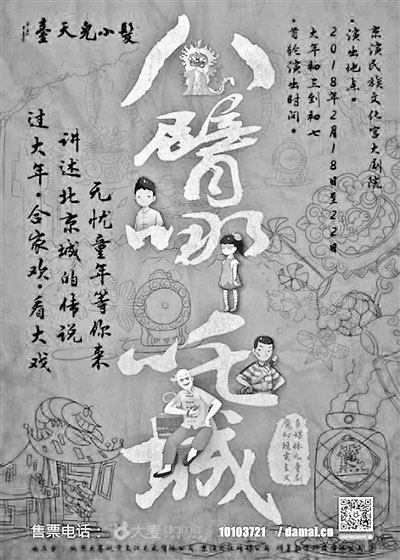 髮小兒天臺
八臂哪吒城
京演民族文化宫大剧院
·演出地点·
2018年2月18日至22日
大年初三到初七
·首轮演出时间·
无忧童年等你来
讲述北京城的传说
过大年·合家欢·看大戏
多媒体儿童剧
魔幻现实主义
售票电话：
大麦
10103721 / damai.cn